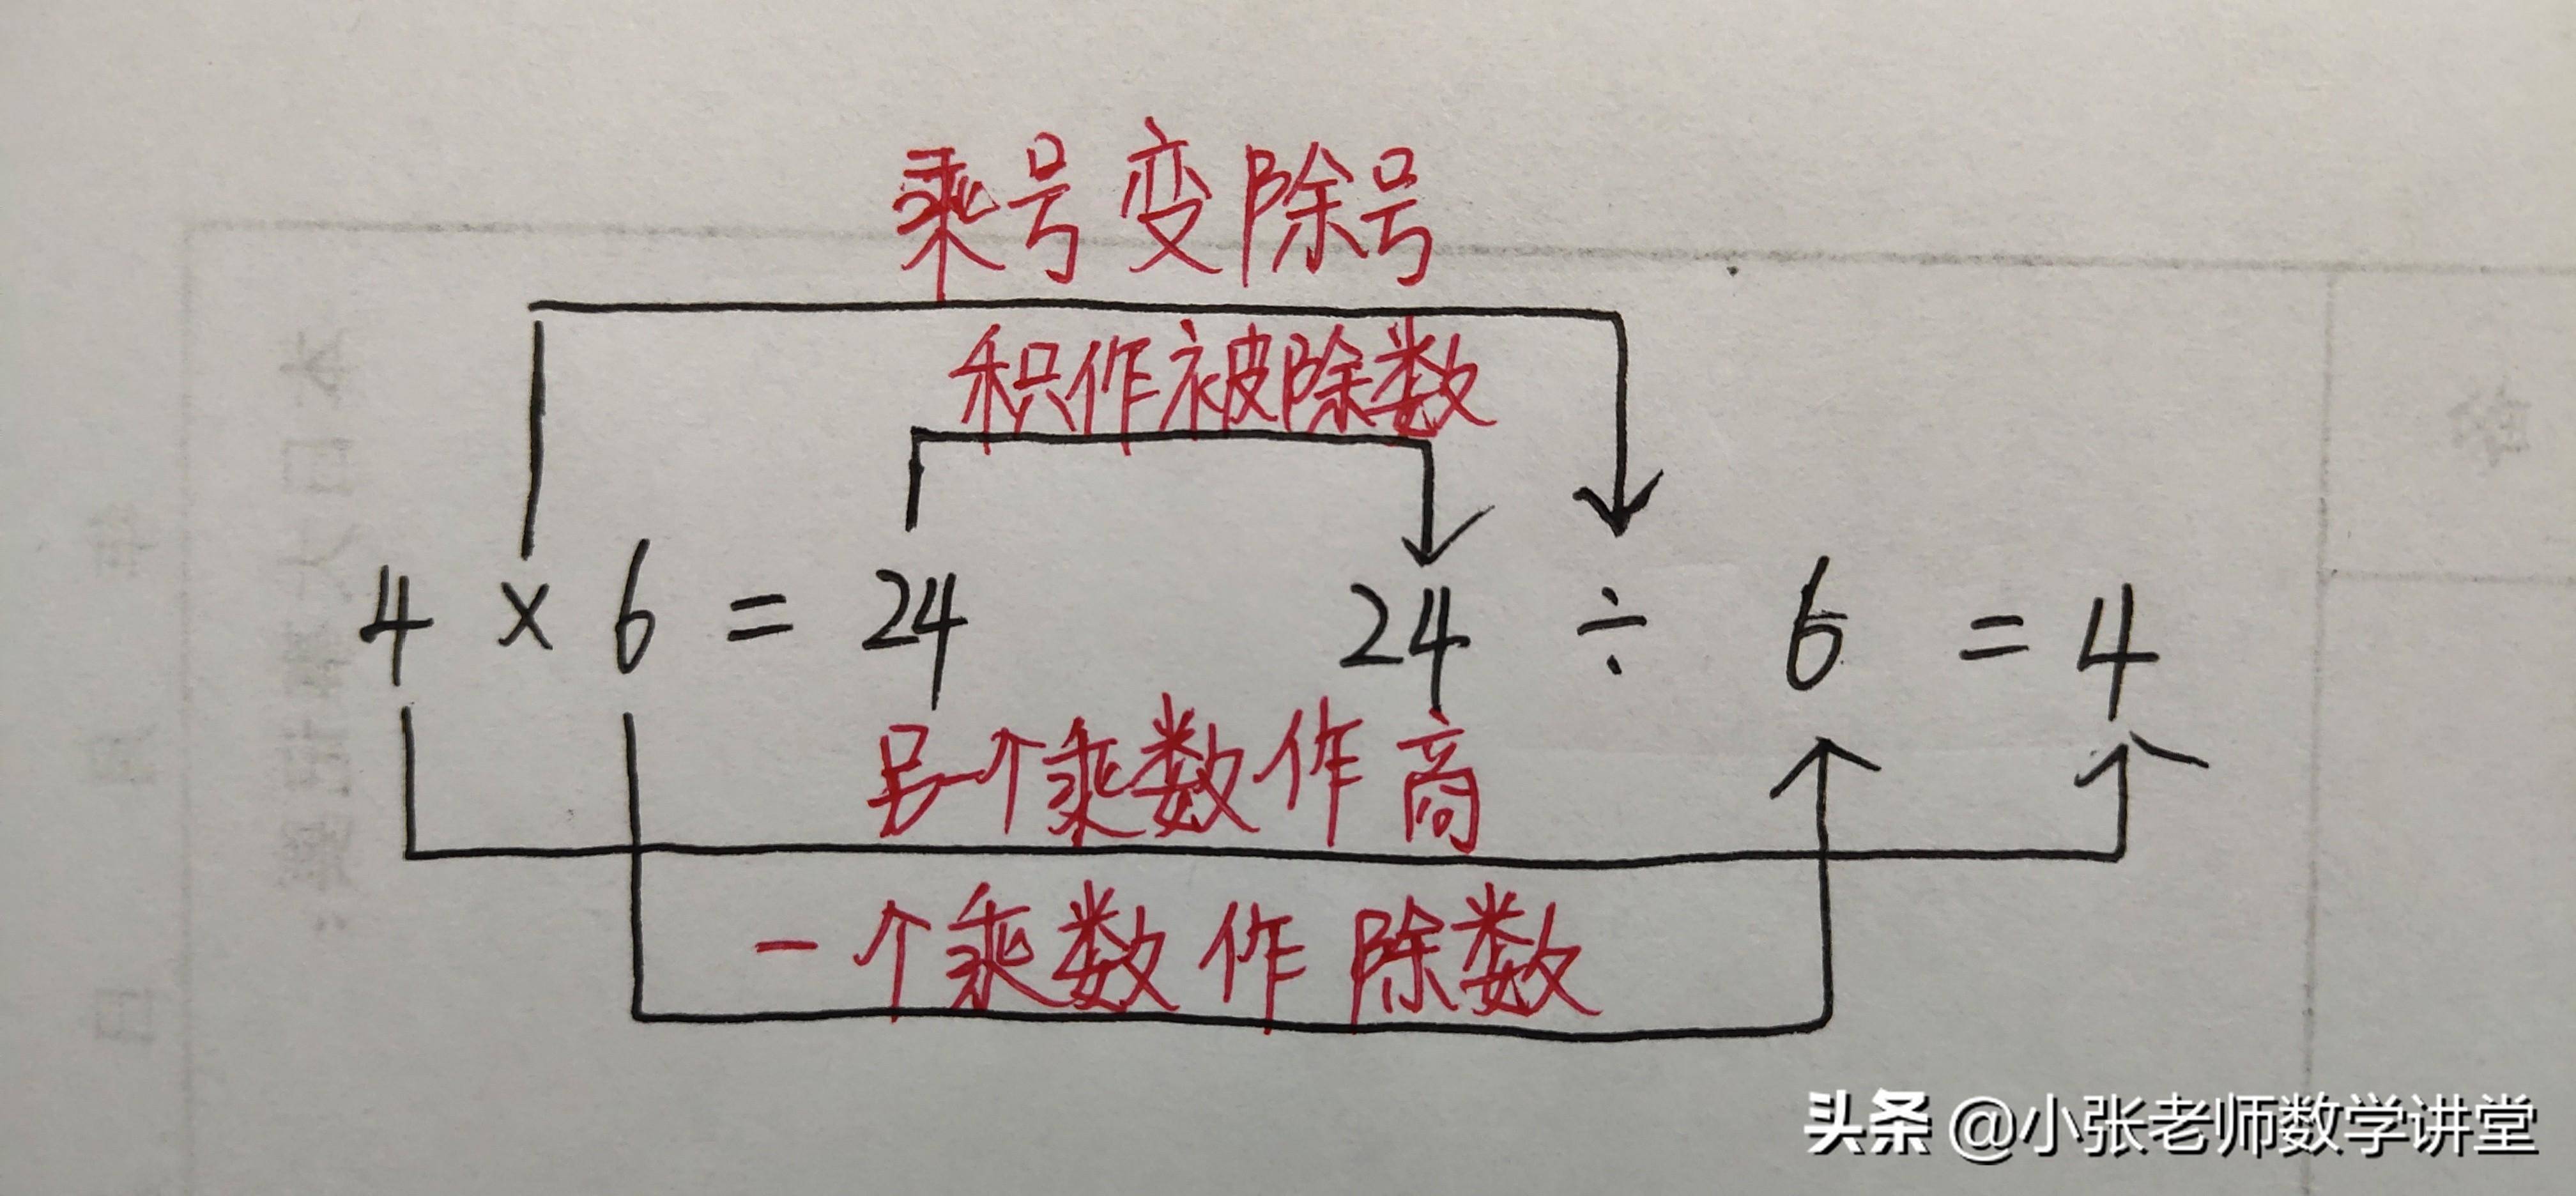 乘号变除号
积作被除数
4 × 6 = 24 24 ÷ 6 = 4
另一个乘数作商
一个乘数作除数
头条 @小张老师数学讲堂